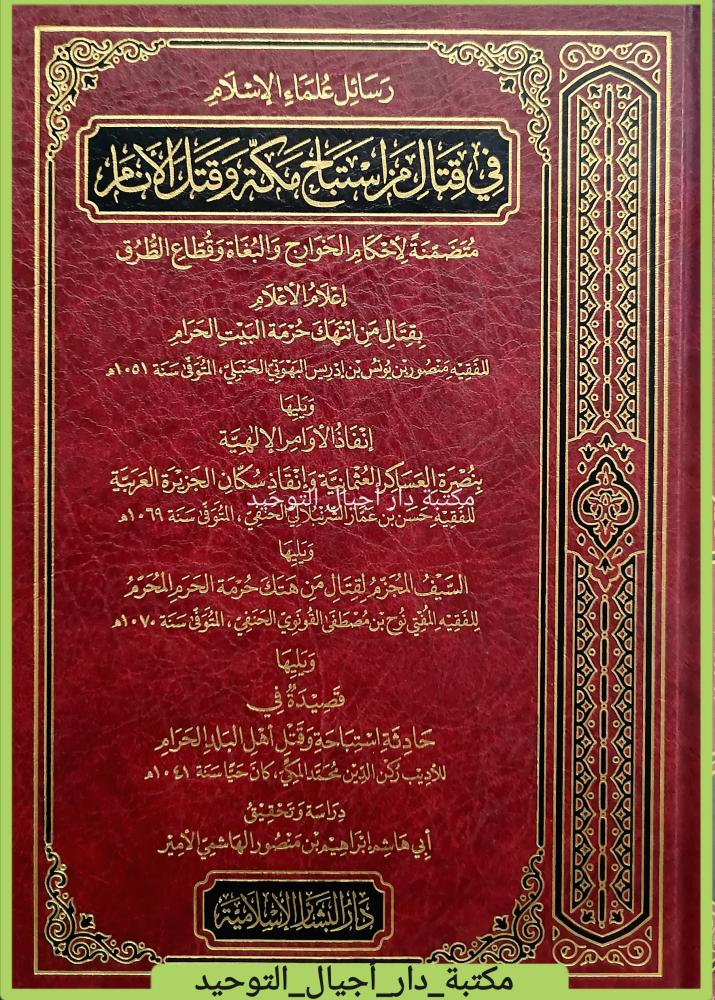 رَسَائِل عُلَمَاءِ الإِسْلَامِ
فِي قِتَالِ مَنِ اسْتَبَاحَ مَكَّةَ وَقَتَلَ الأَنَامَ
مُتَضَمِّنَةً لِأَحْكَامِ الخَوَارِجِ وَالبُغَاةِ وَقُطَّاعِ الطُّرُقِ
إِعْلَامُ الأَعْلَامِ
بِقِتَالِ مَنِ انْتَهَكَ حُرْمَةَ البَيْتِ الحَرَامِ
للفَقِيهِ مَنْصُور بْن يُونُسَ بْنِ إِدْرِيسَ البُهُوتِيِّ الحَنْبَلِيِّ، المُتَوَفَّى سَنَة ١٠٥١هـ
وَيَلِيهَا
إِنْفَاذُ الأَوَامِرِ الإِلٰهِيَّة
بِنُصْرَةِ العَسَاكِرِ العُثْمَانِيَّةِ وَإِنْقَاذِ سُكَّانِ الجَزِيرَةِ العَرَبِيَّةِ
مكتبة دار أجيال التوحيد
للفَقِيهِ حَسَن بْنِ عَمَّارٍ الشُّرُنْبُلَالِيِّ الحَنَفِيِّ، المُتَوَفَّى سَنَة ١٠٦٩هـ
وَيَلِيهَا
السَّيْفُ المُجَزِّمُ لِقِتَالِ مَنْ هَتَكَ حُرْمَةَ الحَرَمِ المُحَرَّمِ
لِلفَقِيهِ المُفْتِي نُوح بْن مُصْطَفَى القُونَوِيِّ الحَنَفِيِّ، المُتَوَفَّى سَنَة ١٠٧٠هـ
وَيَلِيهَا
قَصِيدَةٌ فِي
حَادِثَةِ اسْتِبَاحَةِ وَقَتْلِ أَهْلِ البَلَدِ الحَرَامِ
للأَدِيبِ رُكْنِ الدِّينِ مُحَمَّد المَكِّيِّ، كَانَ حَيًّا سَنَة ١٠٤١هـ
دِرَاسَة وَتَحْقِيقُ
أَبِي هَاشِم إِبْرَاهِيم بْن مَنْصُور الهَاشِمِيّ الأَمِير
دَارُ البَشَائِرِ الإِسْلَامِيَّة
مكتبة_دار_أجيال_التوحيد